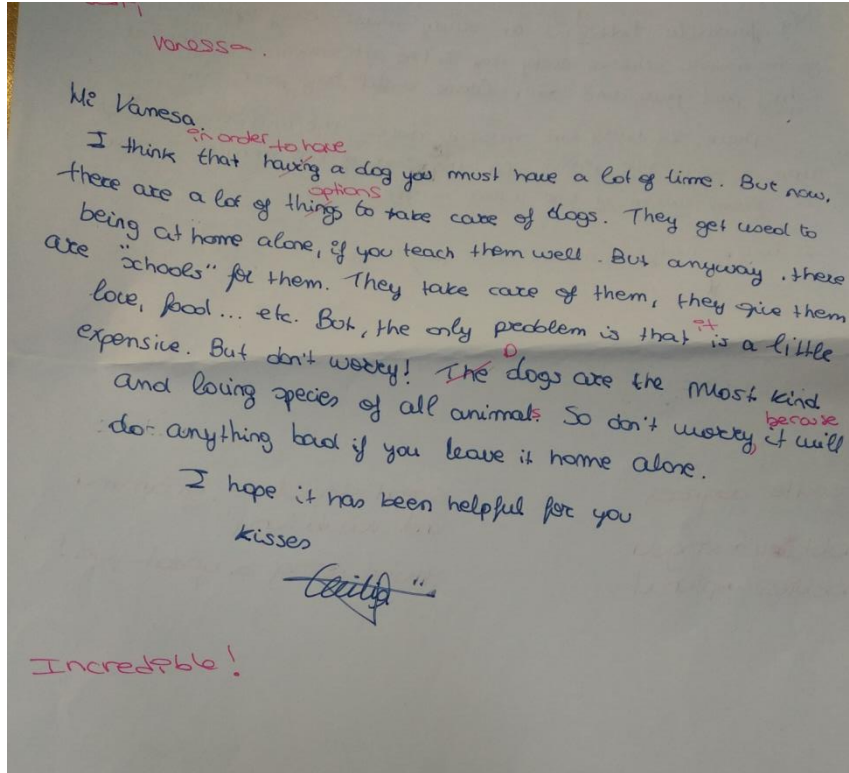 Vanessa.
Hi Vanesa
in order to have
I think that having a dog you must have a lot of time. But now,
options
there are a lot of things to take care of dogs. They get used to
being at home alone, if you teach them well. But anyway, there
are "schools" for them. They take care of them, they give them
love, food... etc. But, the only problem is that it is a little
expensive. But don't worry! The Dogs are the most kind
and loving species of all animals. So don't worry, because it will
do anything bad if you leave it home alone.
I hope it has been helpful for you
Kisses
Cecilia
Incredible!